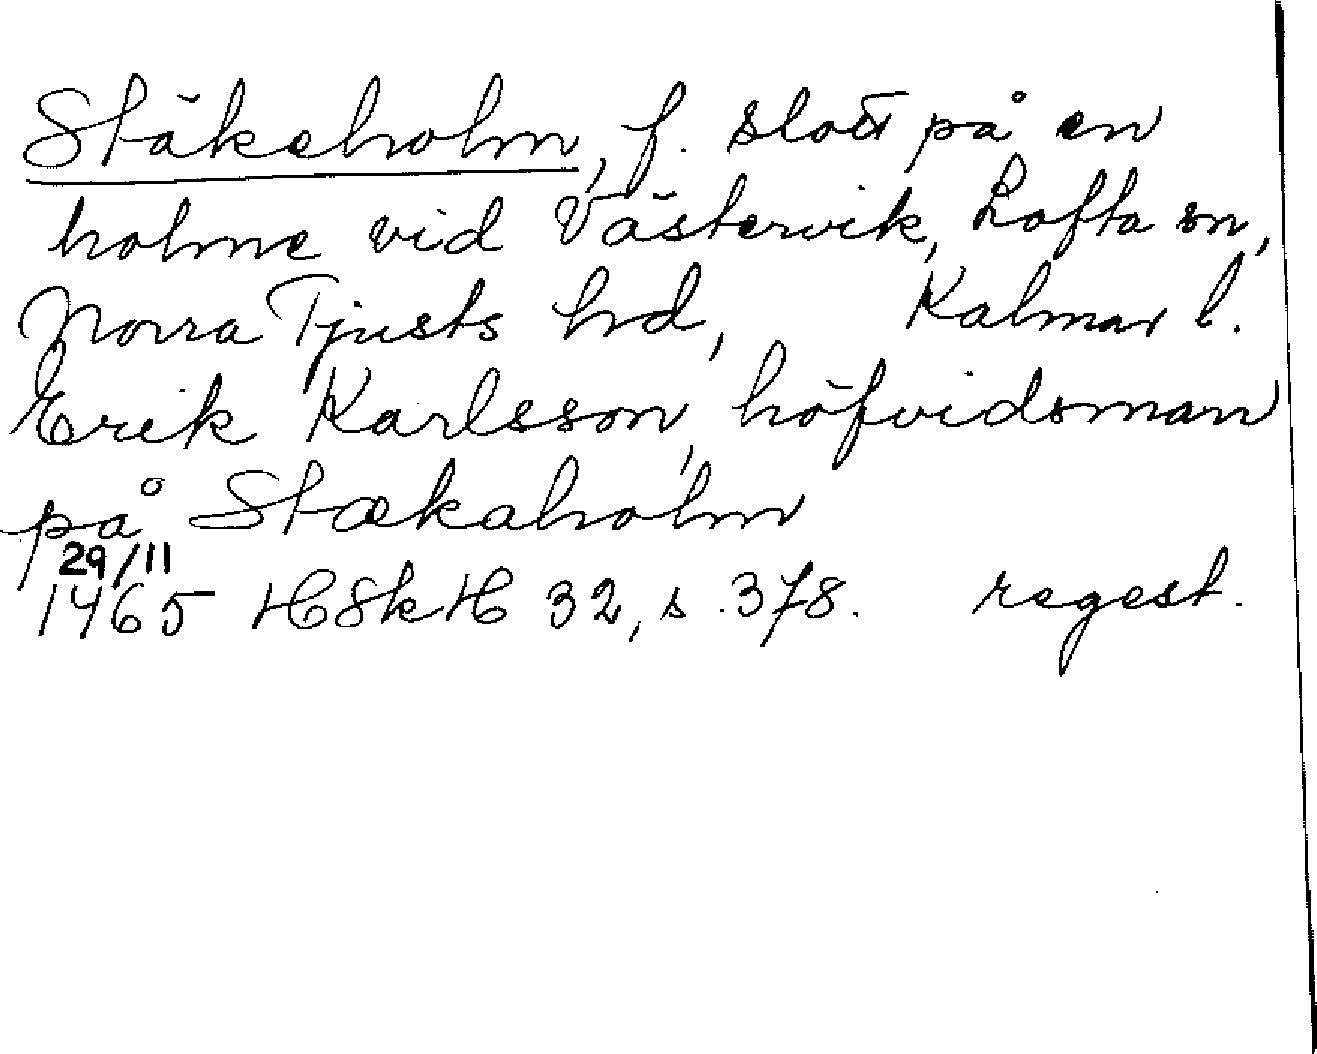 Stäkeholm, f. slott på en
holme vid Västervik, Lofta sn,
Norra Tjusts hd, Kalmar l.
Erik Karlsson, höfvidsman
på Stækaholm
29/11
1465 HSkH 32, s. 378. regest.